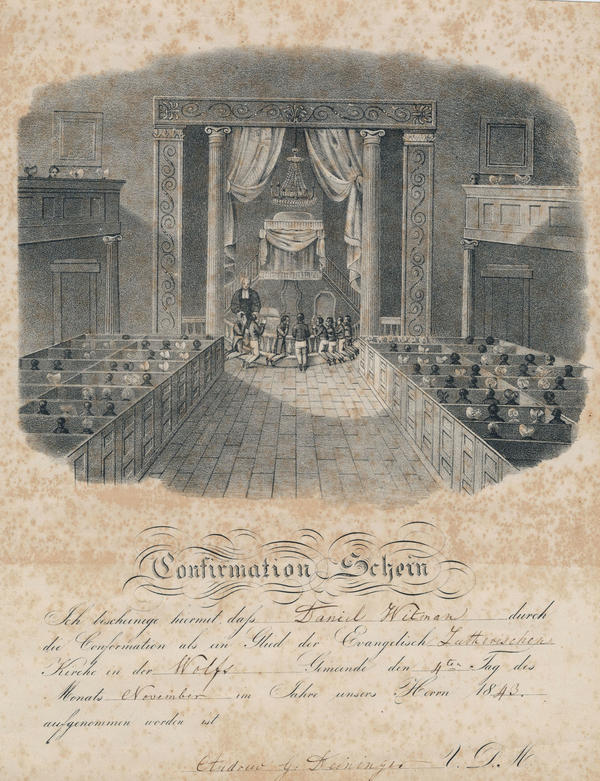 Confirmation Schein
Ich bescheinige hiermit, daß Daniel Witman durch
die Confirmation als ein Glied der Evangelisch Lutherischen
Kirche in der Wolfs Gemeinde den 4ten Tag des
Monats November im Jahre unsers Herrn 1843.
aufgenommen worden ist
Andrew G. Deininger V. D. M.